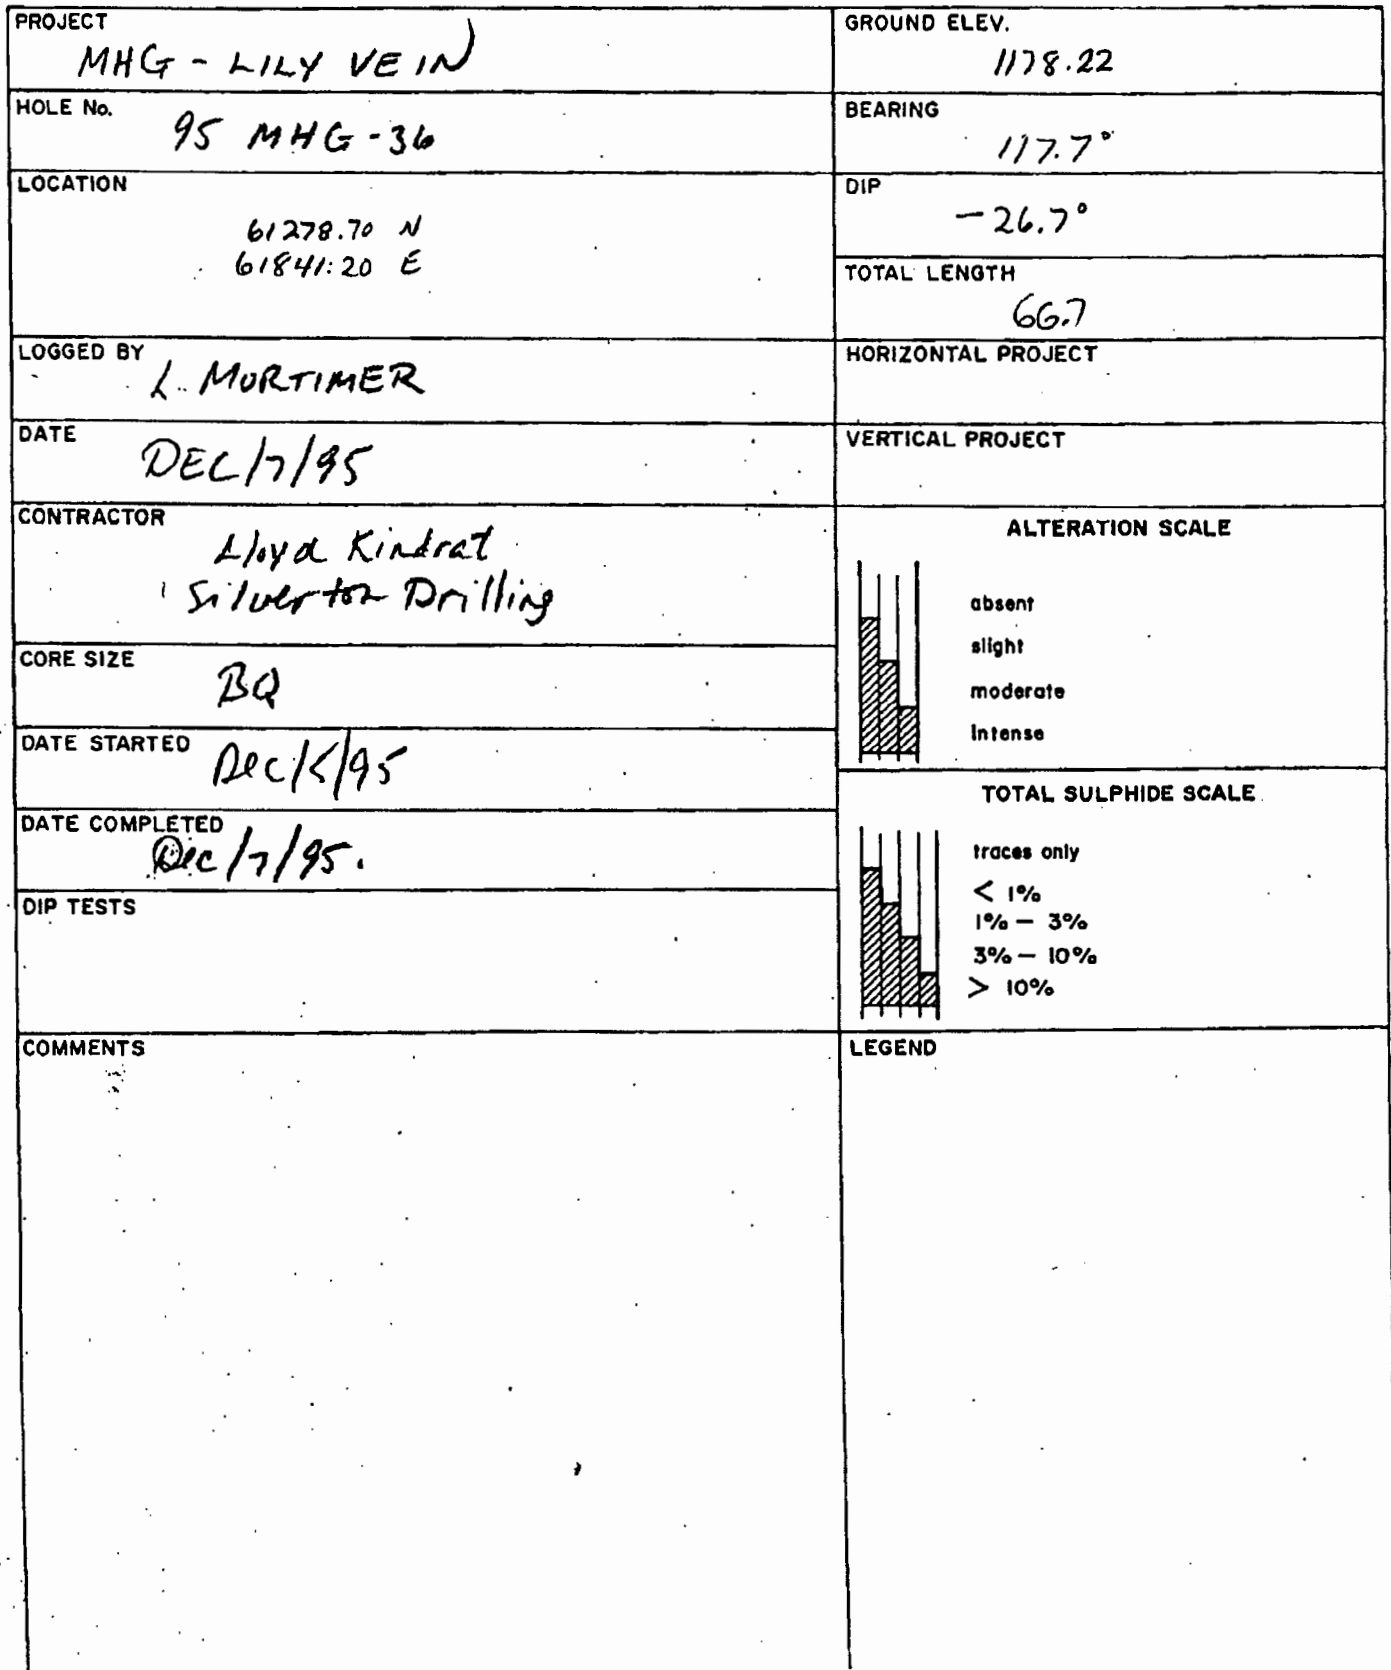 PROJECT
MHG - LILY VEIN
HOLE No.
95 MHG-36
LOCATION
61278.70 N
61841.20 E
LOGGED BY
L. MORTIMER
DATE
DEC/7/95
CONTRACTOR
Lloyd Kindrat
Silverton Drilling
CORE SIZE
BQ
DATE STARTED
Dec/5/95
DATE COMPLETED
Dec/7/95.
DIP TESTS
COMMENTS
GROUND ELEV.
1178.22
BEARING
117.7°
DIP
-26.7°
TOTAL LENGTH
66.7
HORIZONTAL PROJECT
VERTICAL PROJECT
ALTERATION SCALE
absent
slight
moderate
Intense
TOTAL SULPHIDE SCALE
traces only
< 1%
1% – 3%
3% – 10%
> 10%
LEGEND